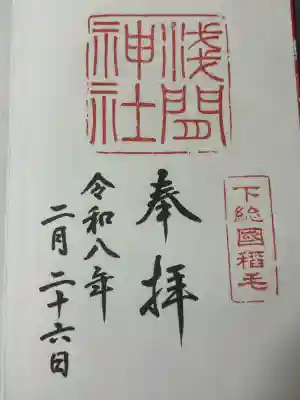 浅間
神社
下総國稲毛
奉拝
令和八年
二月二十六日